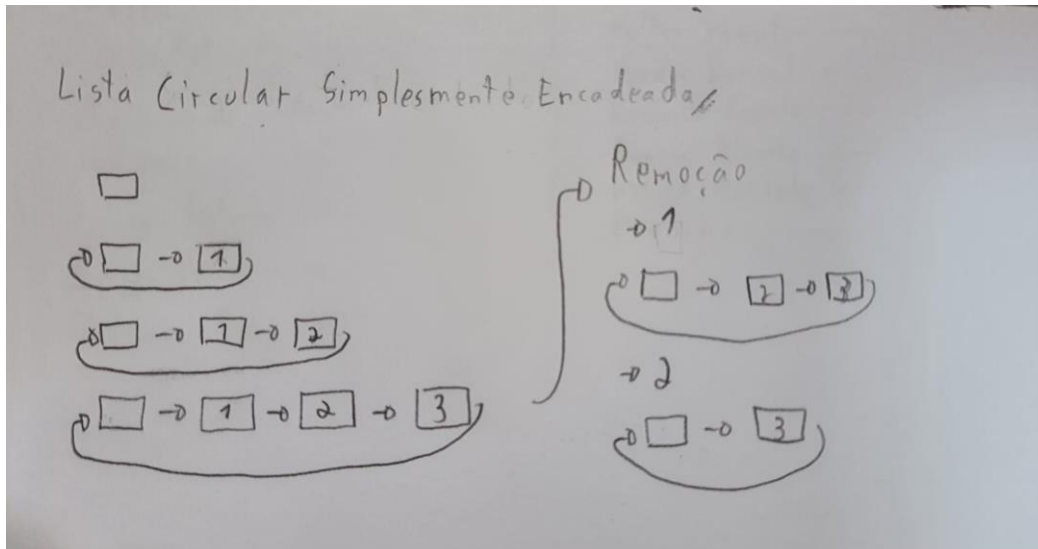 Lista Circular Simplesmente Encadeada
1
1 2
1 2 3
Remoção
1
2 3
2
3